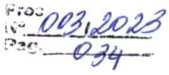 Proc
Nº 003,2023
Pag. 034